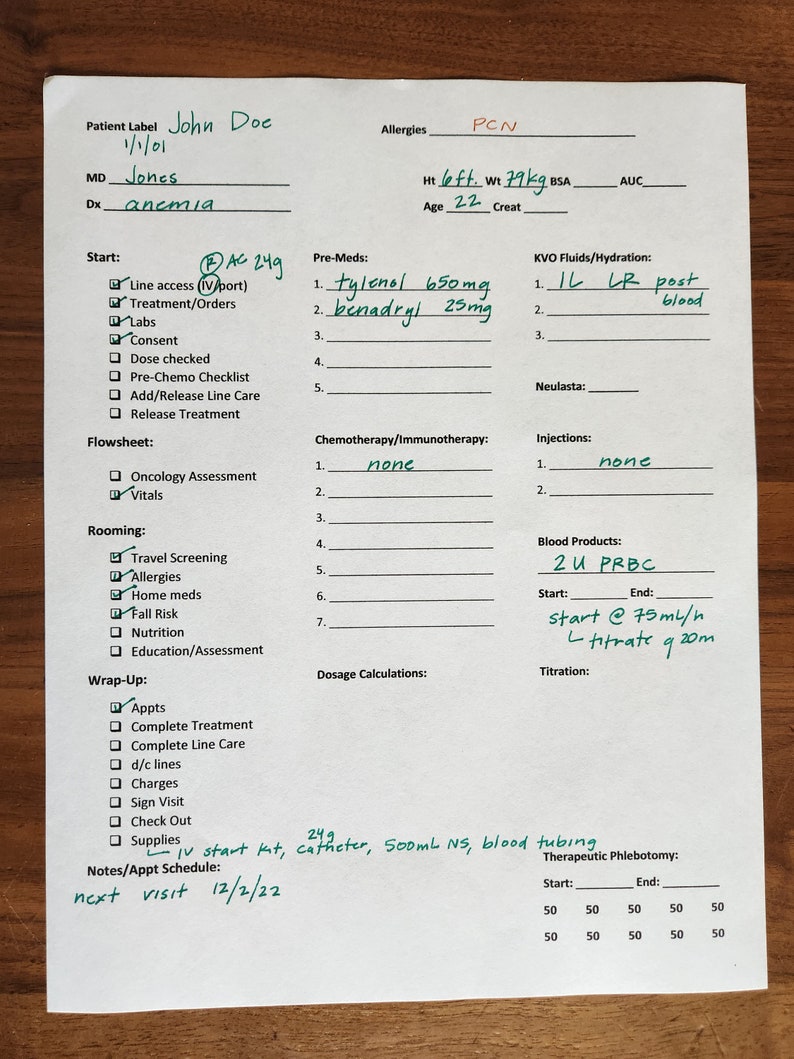 Patient Label John Doe
1/1/01
Allergies PCN
MD Jones
Dx anemia
Ht 6ft. Wt 79kg BSA AUC
Age 22 Creat
Start:
Ⓡ AC 24g
Line access (IV/port)
Treatment/Orders
Labs
Consent
Dose checked
Pre-Chemo Checklist
Add/Release Line Care
Release Treatment
Flowsheet:
Oncology Assessment
Vitals
Rooming:
Travel Screening
Allergies
Home meds
Fall Risk
Nutrition
Education/Assessment
Wrap-Up:
Appts
Complete Treatment
Complete Line Care
d/c lines
Charges
Sign Visit
Check Out
Supplies
24g
IV start kit, catheter, 500mL NS, blood tubing
Notes/Appt Schedule:
next visit 12/2/22
Pre-Meds:
1. tylenol 650mg
2. benadryl 25mg
3.
4.
5.
Chemotherapy/Immunotherapy:
1. none
2.
3.
4.
5.
6.
7.
Dosage Calculations:
KVO Fluids/Hydration:
1. 1L LR post
blood
2.
3.
Neulasta:
Injections:
1. none
2.
Blood Products:
2 U PRBC
Start: End:
start @ 75mL/h
titrate q 20m
Titration:
Therapeutic Phlebotomy:
Start: End:
50 50 50 50 50
50 50 50 50 50